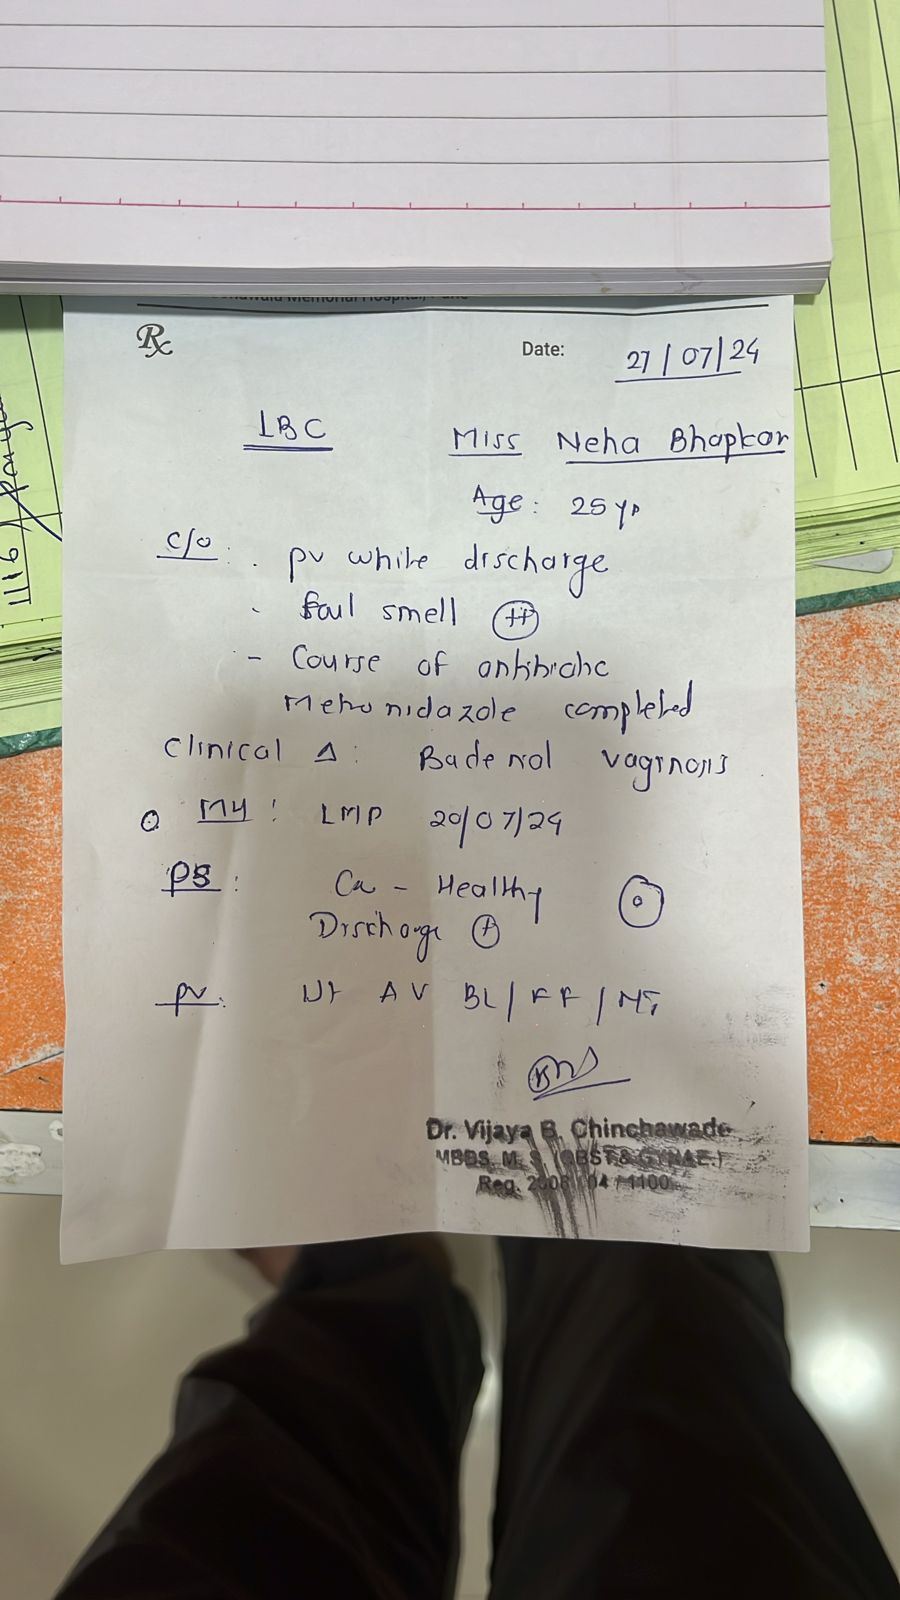 Memorial Hospital, Pune
Rx
Date: 27/07/24
LBC
Miss Neha Bhapkar
Age: 25 yr
C/o: . pv white discharge
- foul smell ++
- Course of antibiotic
Metronidazole completed
Clinical Δ: Bacterial vaginosis
MH: LMP 20/07/24
PS: Cx - Healthy
Discharge +
PV: Ut AV BL/FF/NT
Dr. Vijaya B. Chinchawade
MBBS, M. S. (OBST & GYNAE.)
Reg. 2008 / 04 / 1100